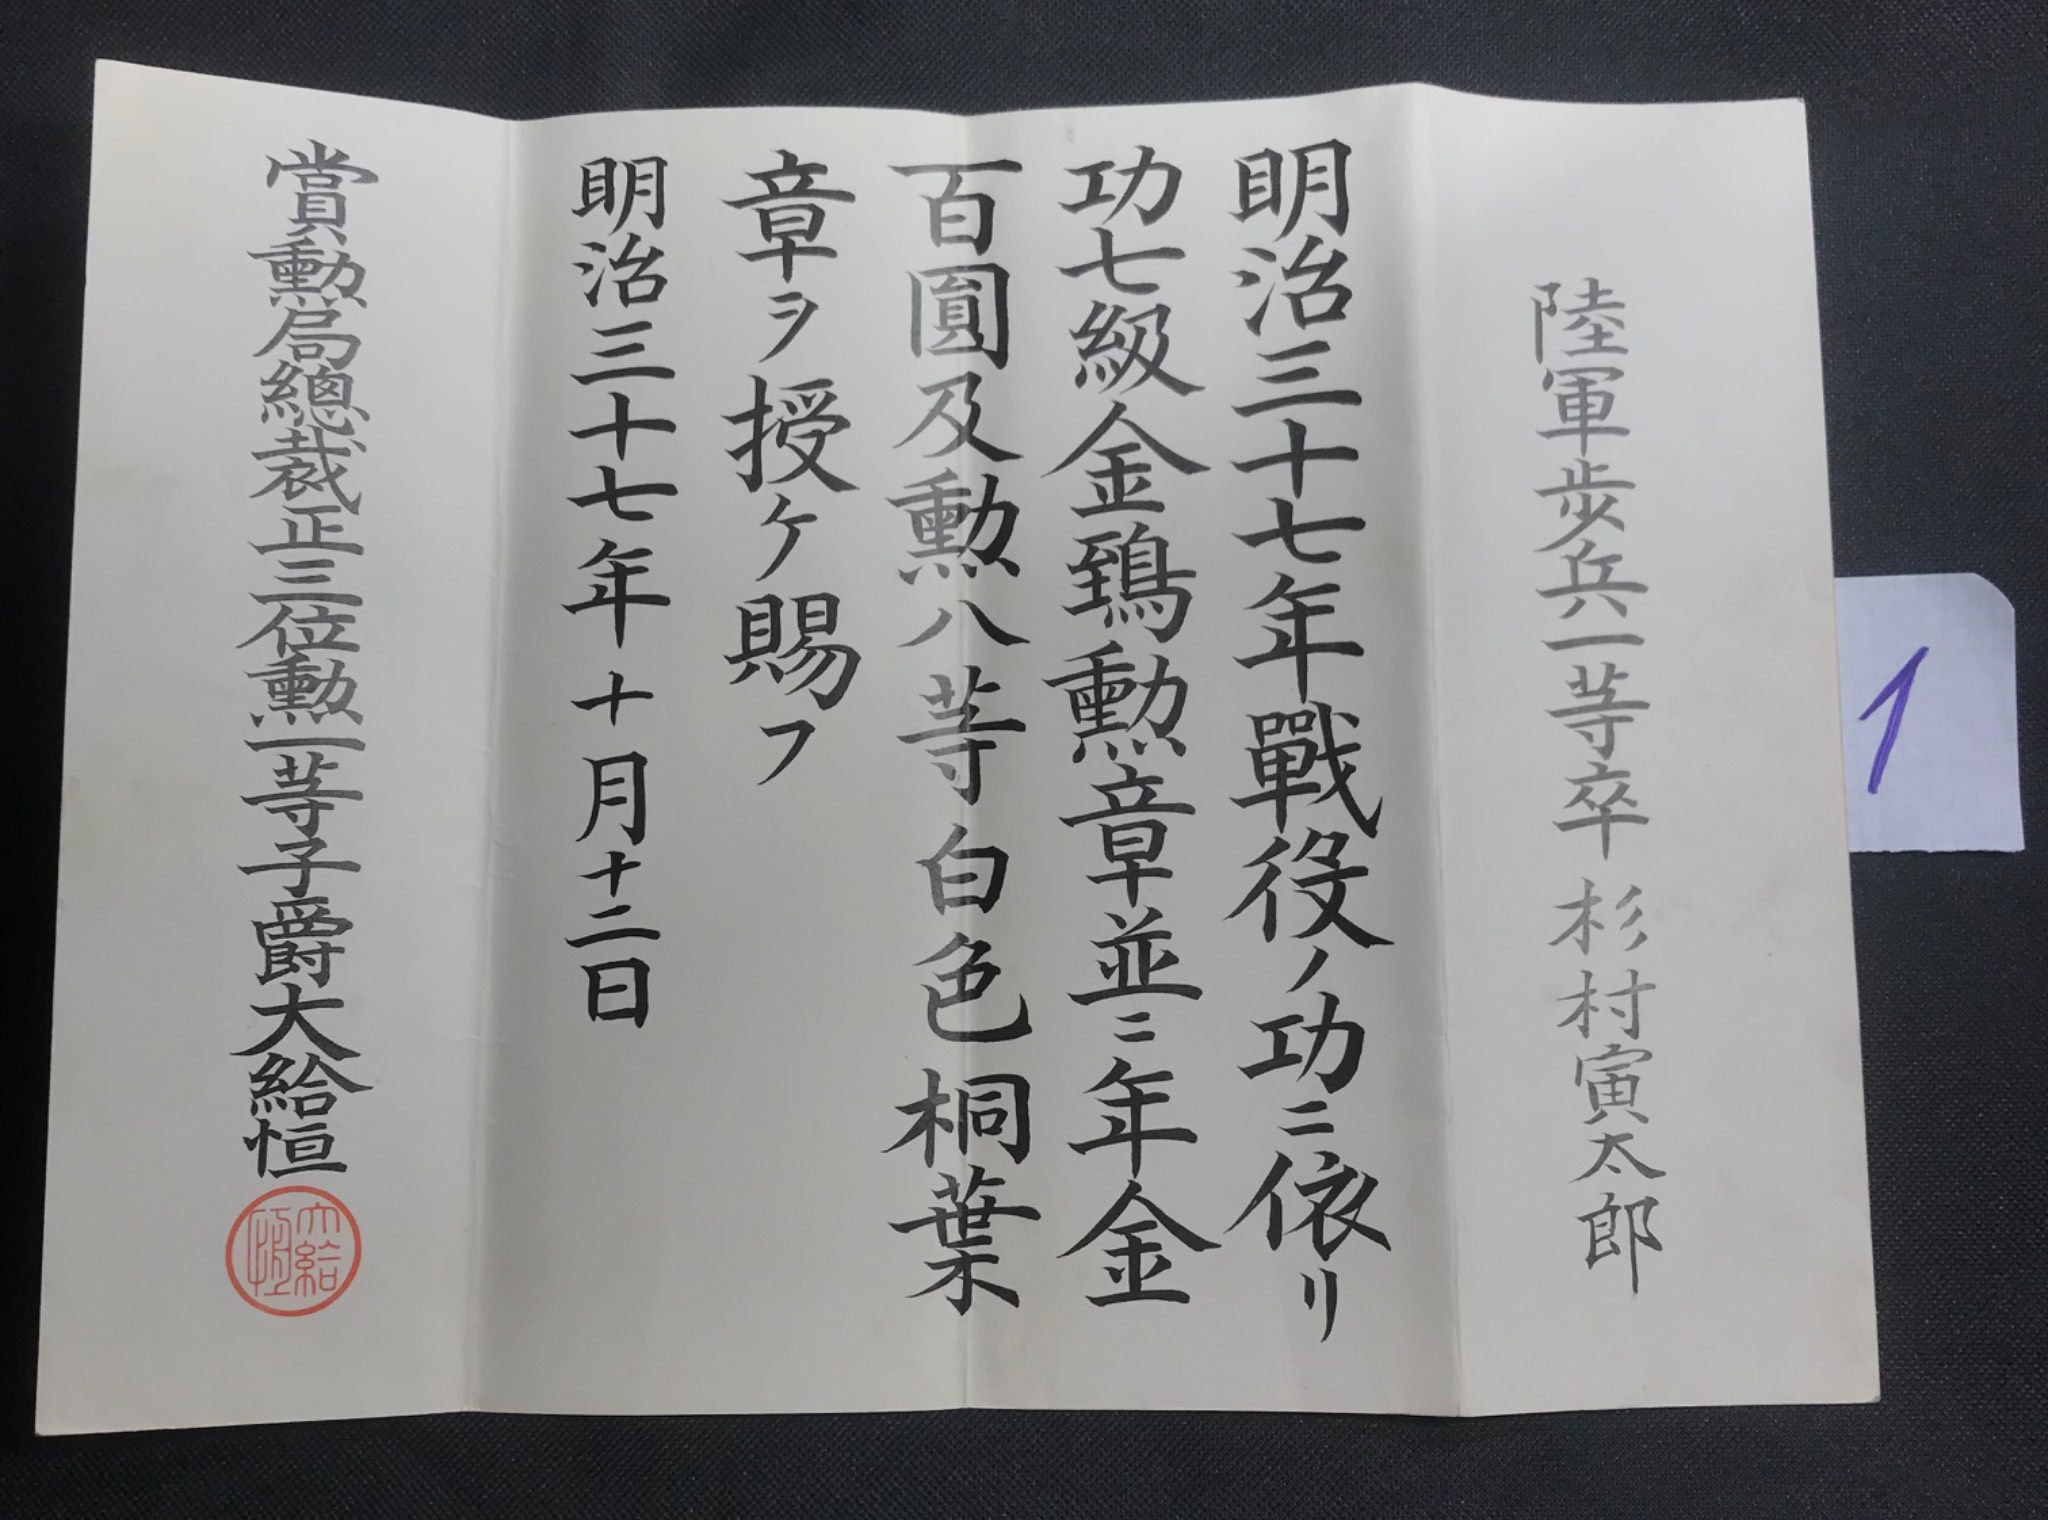 陸軍歩兵一等卒 杉村寅太郎
明治三十七年戰役ノ功ニ依リ
功七級金鵄勲章並ニ年金
百圓及勲八等白色桐葉
章ヲ授ケ賜フ
明治三十七年十月十二日
賞勲局總裁正三位勲一等子爵大給恒
大給恒
1